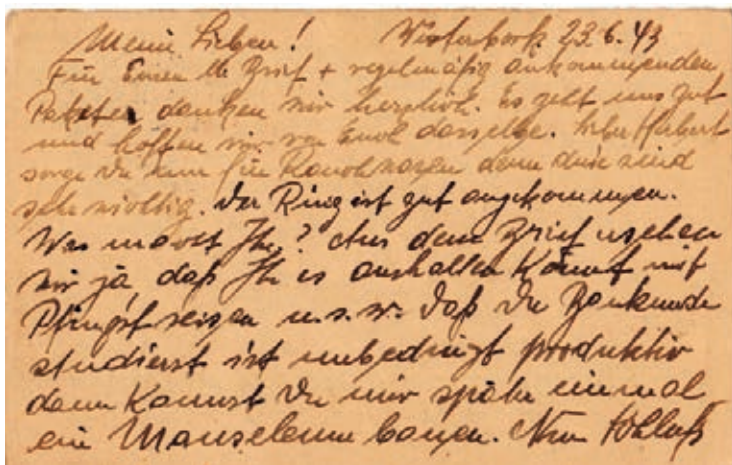 Meine Lieben! Westerbork 23.6.43
Für Euren lb Brief + regelmäßig ankommenden
Pakete danken wir herzlich. Es geht uns gut
und hoffen wir von Euch dasselbe. Lieber Herbert
sorge Du nun für Rauchwaren denn diese sind
sehr wichtig. Der Ring ist gut angekommen.
Was macht Ihr? Aus dem Brief ersehen
wir ja, daß Ihr es aushalten könnt mit
Pfingstreisen u.s.w. Daß Du Baukunde
studierst ist unbedingt produktiv
dann kannst Du mir später einmal
ein Mauseleum bauen. Nun Schluß